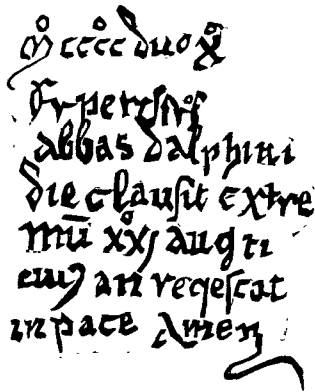 M° cccc° duo x°
fr petrus
abbas dalphini
die clausit extre
mū xxj augti
cuiꝯ an reqescat
in pace Amen